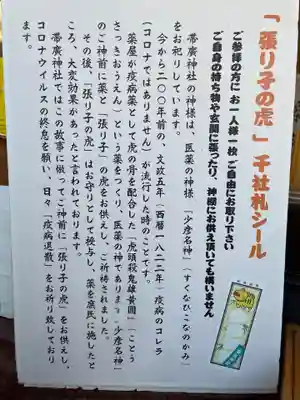 「張り子の虎」千社札シール
ご参拝の方に お一人様一枚 ご自由にお取り下さい
ご自身の持ち物や玄関に張ったり、神棚にお供え頂いても構いません
帯廣神社の神様は、医薬の神様「少彦名神」(すくなひこなのかみ)
をお祀りしています。
今から二〇〇年前の、文政五年(西暦一八二二年)疫病のコレラ
(コロナではありません)が流行した時のことです。
薬屋が疫病薬として虎の骨を配合した「虎頭殺鬼雄黄圓」(ことう
さっきおうえん)という薬をつくり、医薬の神であります少彦名神
のご神前に薬と「張り子の虎」をお供えし、ご祈祷されました。
その後、「張り子の虎」はお守りとして授与し、薬を庶民に施したと
ころ、大変効果があったと言われております。
帯廣神社ではこの故事に倣ってご神前に「張り子の虎」をお供えし、
コロナウイルスの終息を願い、日々「疫病退散」をお祈り致しており
ます。